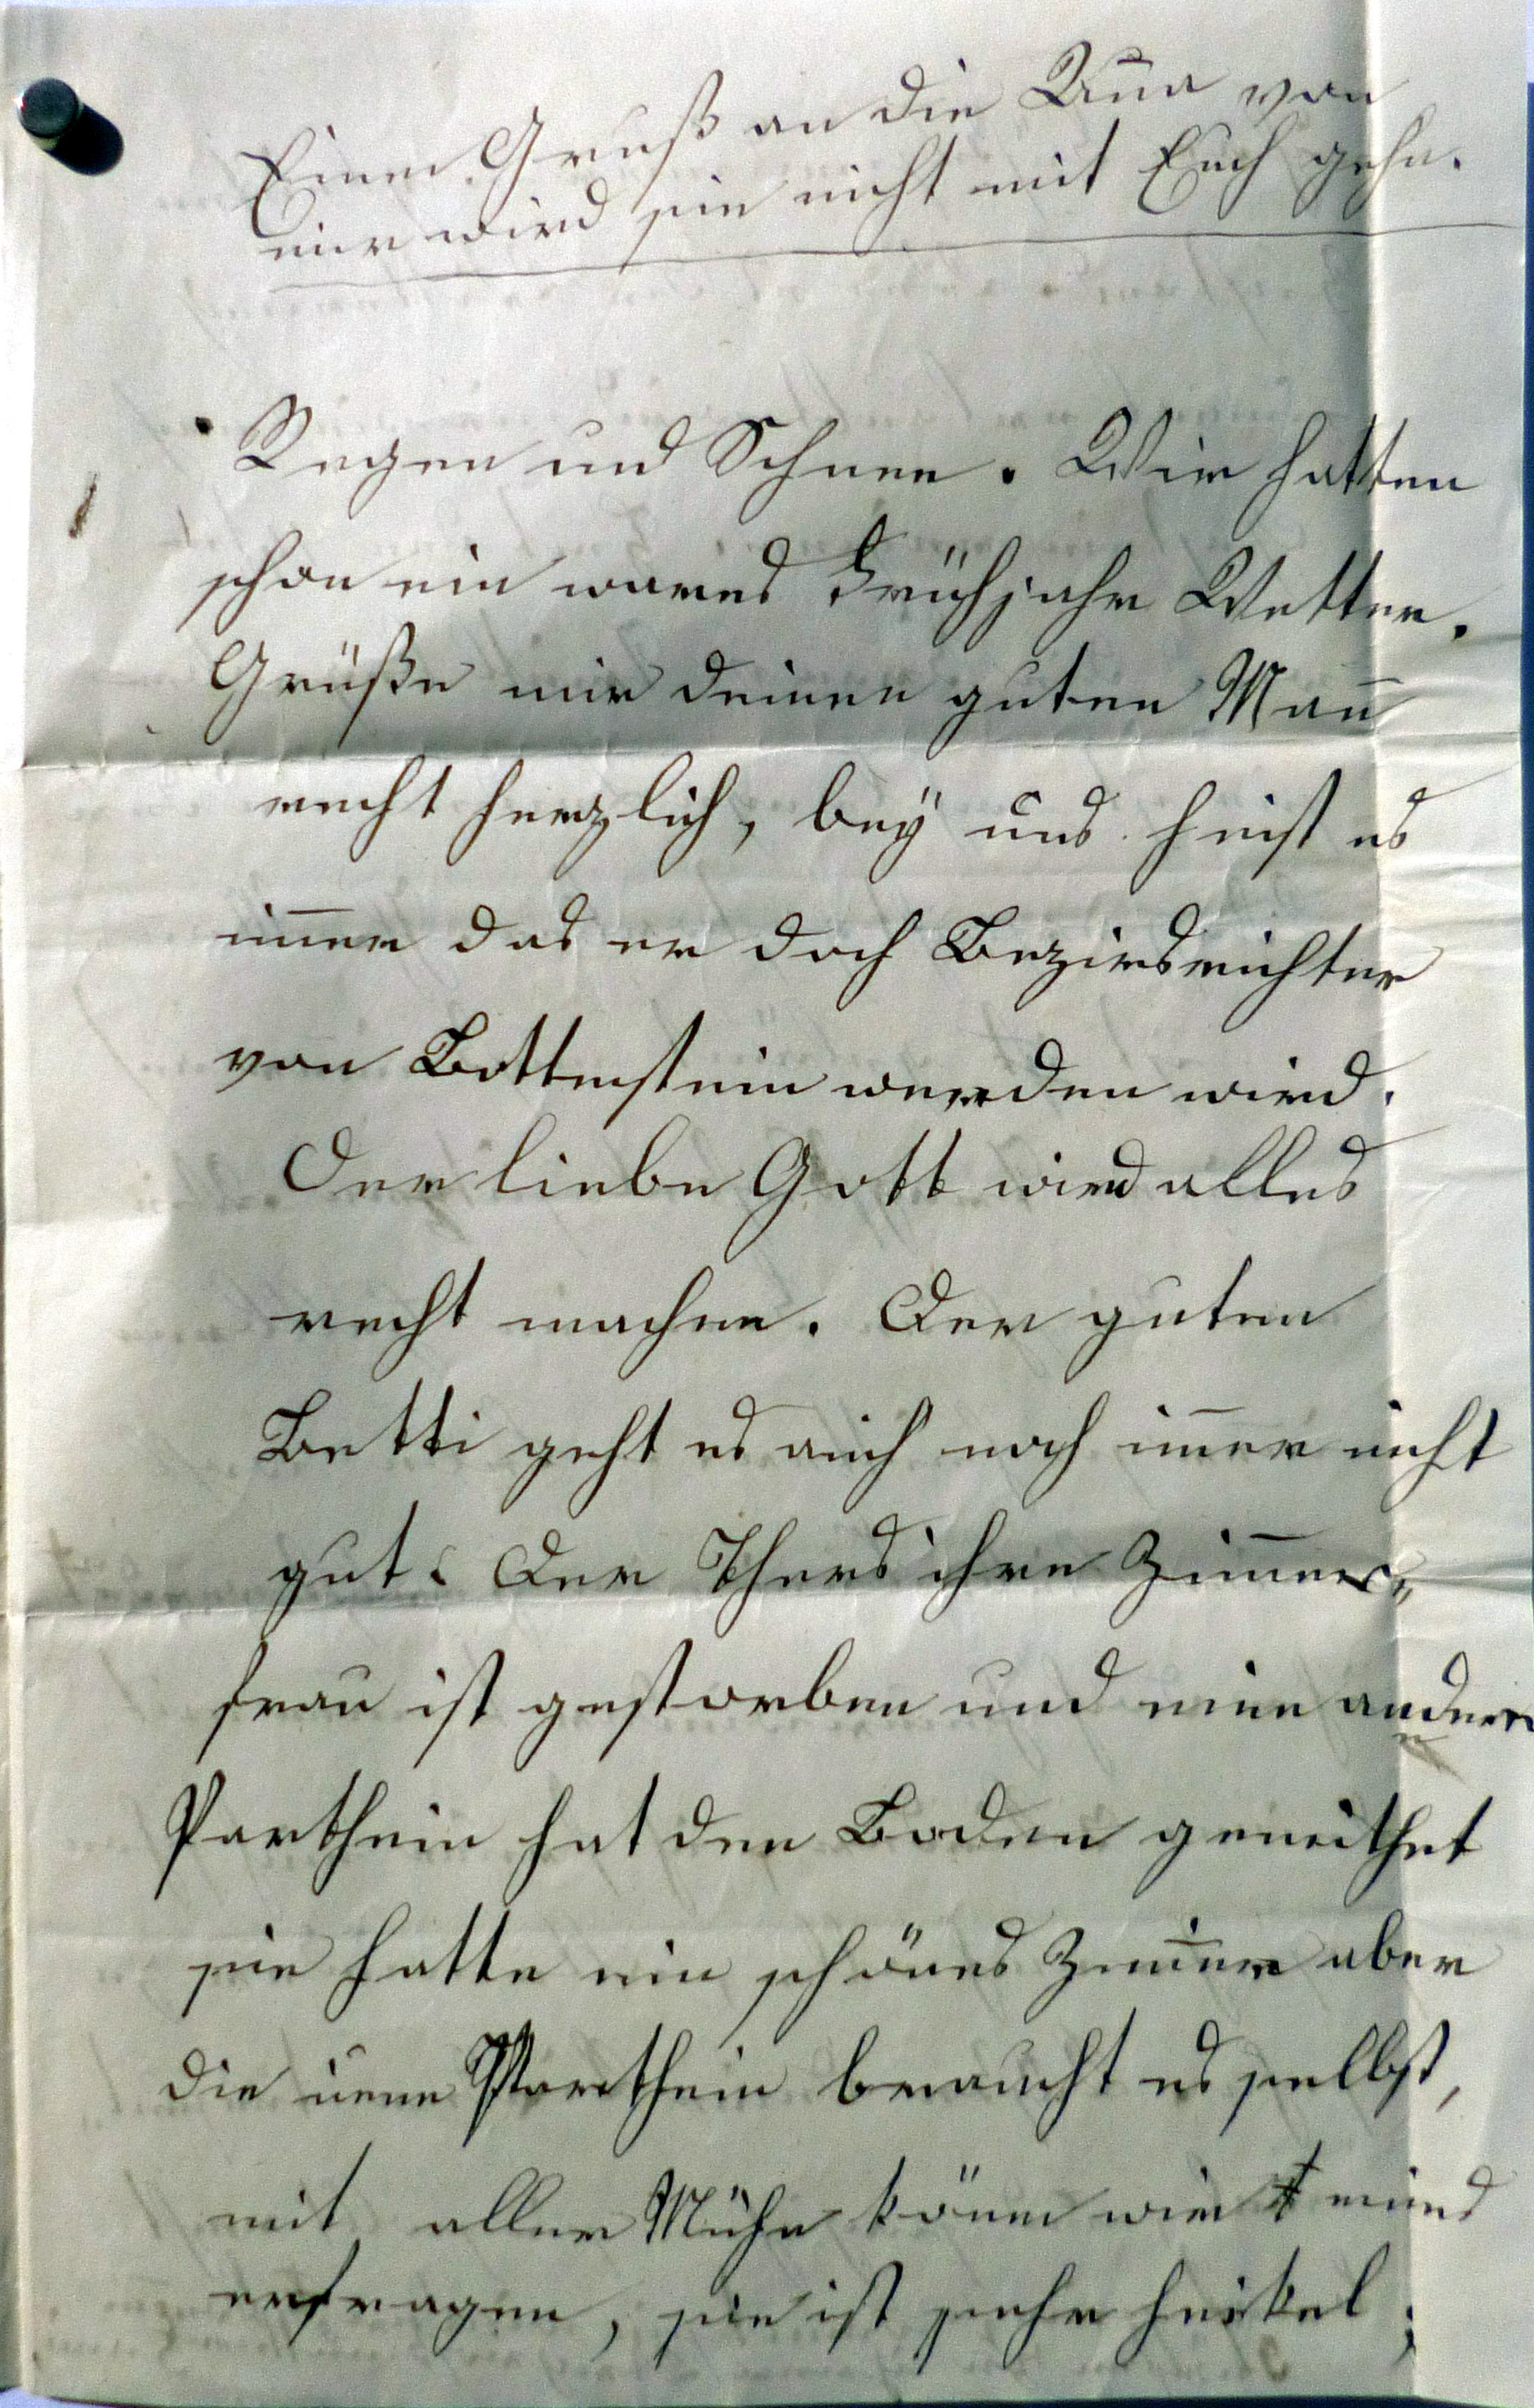 Einen Gruß an die Anna von
mir wird sie nicht mit Euch gehn.
Regen und Schnee. Wir hatten
schon ein wares Frühjahr Wetter.
Grüße mir deinen guten Man̄
recht herzlich, bey uns heist es
im̄er das er doch Bezirsrichter
von Bottenstein werden wird.
Der liebe Gott wird alles
recht machen. Der guten
Betti geht es auch noch im̄er nicht
gut. Der Thers ihre Zim̄er„
frau ist gestorben und eine andere
Parthein hat den Boden gemithet
sie hatte ein schönes Zim̄er aber
die neue Parthein braucht es selbst,
mit aller Mühe könen wir keines
erfragen, sie ist sehr heikel;